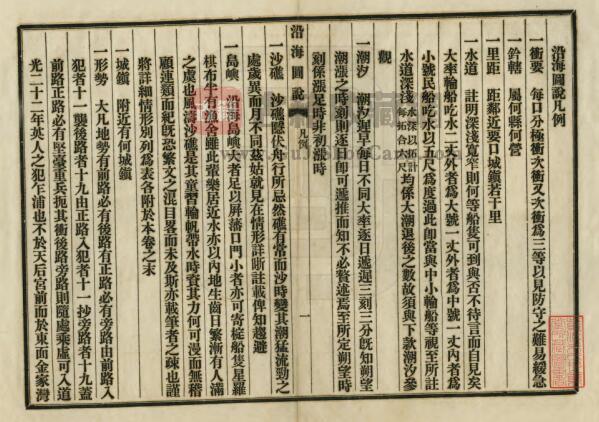 沿海圖說凡例
一衝要　每口分極衝次衝又次衝爲三等以見防守之難易緩急
一鈐轄　屬何縣何營
一里距　距鄰近要口城鎮若干里
一水道　註明深淺寬窄則何等船隻可到與否不待言而自見矣
大率輪船吃水二丈外者爲大號一丈外者爲中號一丈內者爲
小號民船吃水以五尺爲度過此卽當與中小輪船等視至所註
水道深淺水深以拓計每拓合六尺均係大潮退後之數故須與下款潮汐參
觀
一潮汐　潮汐遲早每日不同大率逐日遞遲三刻三分旣知朔望
潮漲之時刻則逐日卽可遞推而知不必贅述焉至所定朔望時
刻係漲足時非初漲時
沿海圖說
凡例
一
一沙礁　沙礁隱伏舟行所忌然礁有常而沙時變其潮猛流勁之
處歲異而月不同茲姑就見在情形詳晰註載俾知趨避
一島嶼　沿海島嶼大者足以屏藩口門小者亦可寄椗船隻星羅
棋布半住漁舍雖此輩樂居近水亦以內地生齒日繁漸有人滿
之虞也風濤沙礁是其童習輪帆帶水時資其力何可漫而無稽
顧連類而紀旣恐繁文之混目畧而未及斯亦載筆者之疎也謹
將詳細情形別列爲表各附於本卷之末
一城鎮　附近有何城鎮
一形勢　大凡地勢有前路必有後路有正路必有旁路由前路入
犯者十一襲後路者十九由正路入犯者十一抄旁路者十九蓋
前路正路必有堅臺重兵扼其衝後路旁路則隨處乘虛可入道
光二十二年英人之犯乍浦也不於天后宮前而於東面金家灣